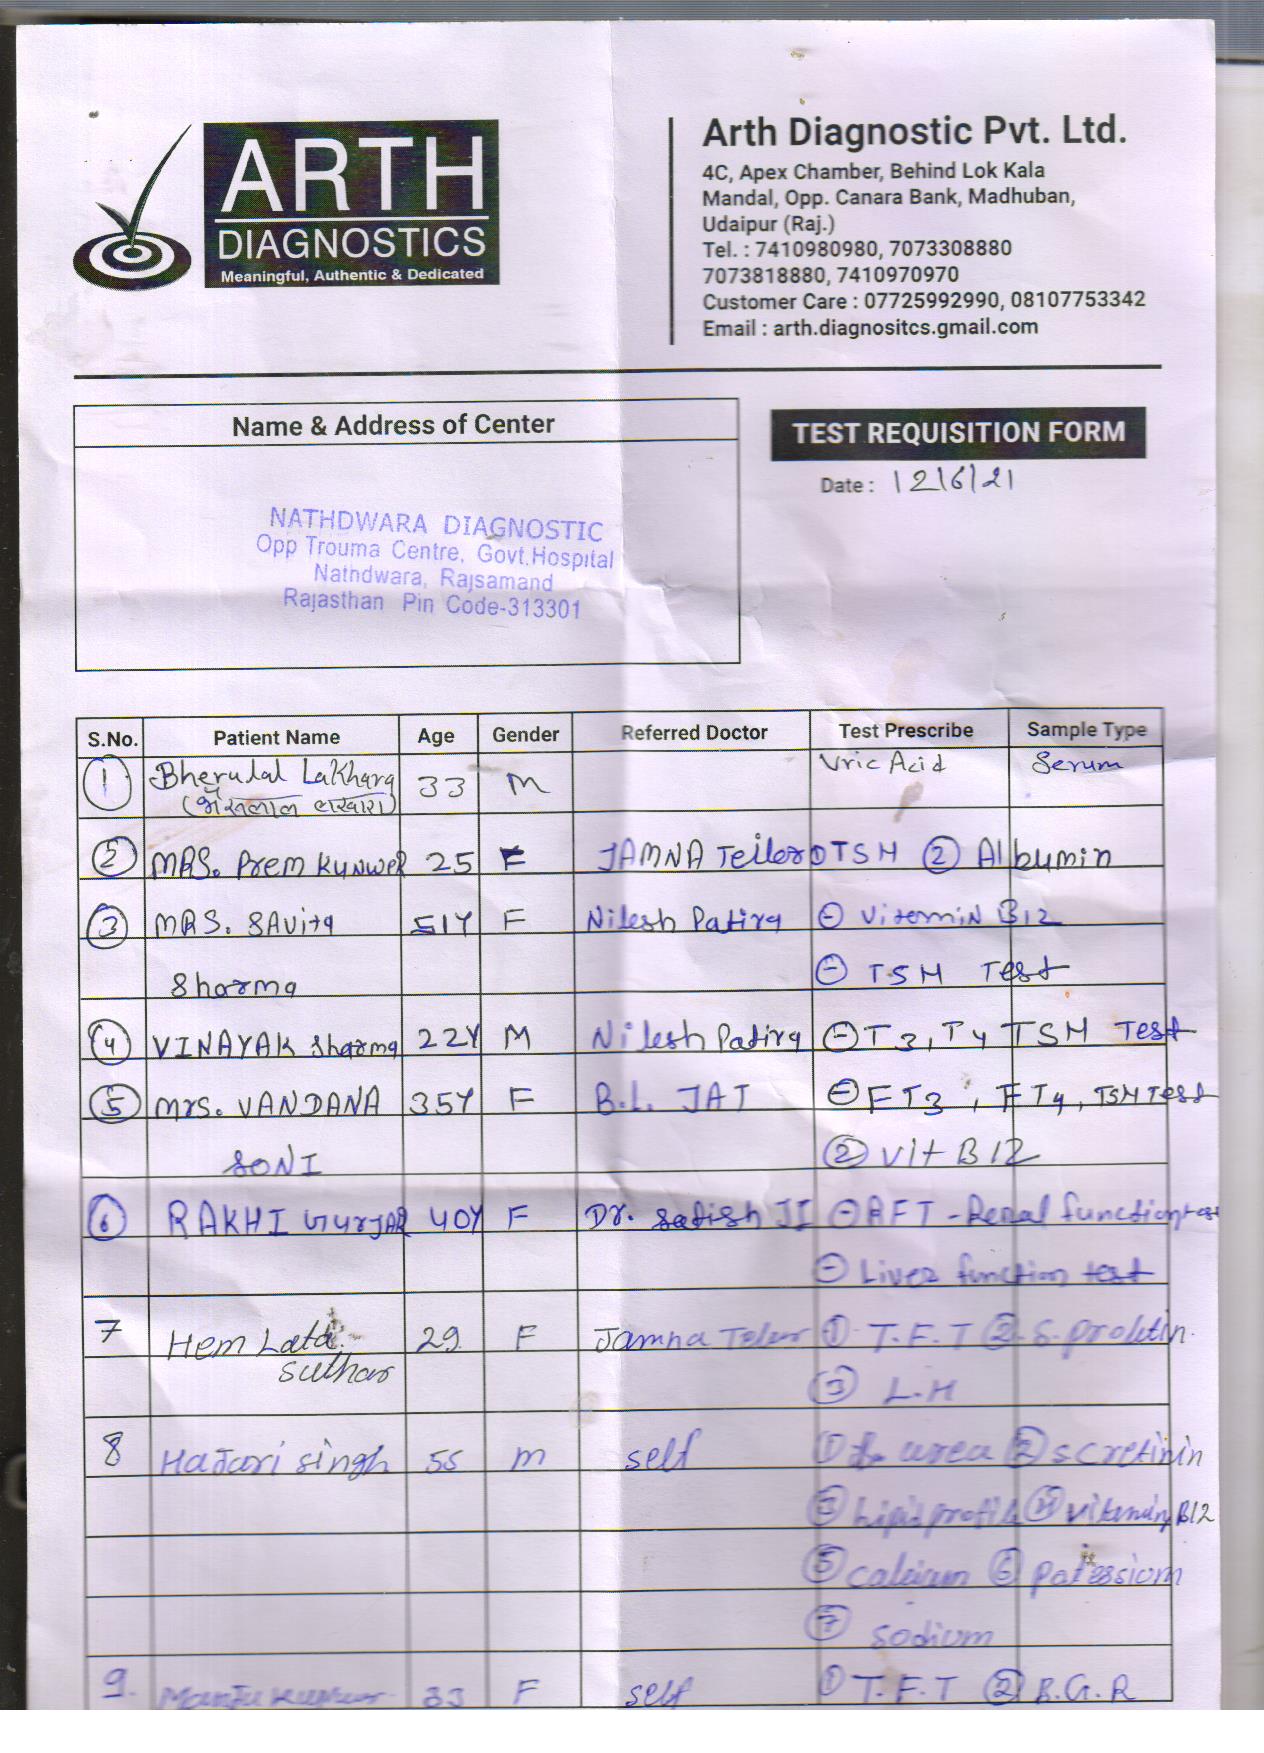 ARTH
DIAGNOSTICS
Meaningful, Authentic & Dedicated
Arth Diagnostic Pvt. Ltd.
4C, Apex Chamber, Behind Lok Kala
Mandal, Opp. Canara Bank, Madhuban,
Udaipur (Raj.)
Tel. : 7410980980, 7073308880
7073818880, 7410970970
Customer Care : 07725992990, 08107753342
Email : arth.diagnositcs.gmail.com
Name & Address of Center
TEST REQUISITION FORM
Date : 12/6/21
NATHDWARA DIAGNOSTIC
Opp Trouma Centre, Govt.Hospital
Nathdwara, Rajsamand
Rajasthan Pin Code-313301
S.No. Patient Name Age Gender Referred Doctor Test Prescribe Sample Type
1 Bherulal Lakhara 33 M Uric Acid Serum
(भैरुलाल लखारा)
2 MRS. Prem Kunwer 25 F JAMNA Teiler TSH 2 Albumin
3 MRS. Savita 51Y F Nilesh Patira - Vitamin B12
Sharma - TSH Test
4 VINAYAK Sharma 22Y M Nilesh Patira - T3, T4 TSH Test
5 Mrs. VANDANA 35Y F B.L. JAT - FT3, FT4, TSH Test
SONI 2 Vit B12
6 RAKHI Gurjar 40Y F Dr. Satish JI - RFT - Renal function test
- Liver function test
7 Hem Lata 29 F Jamna Teler 1 T.F.T 2 S. prolktin
Suthar 3 L.H
8 Hajari singh 55 m self 1 urea 2 s cretinin
3 Lipid profile 4 vitamin B12
5 calcium 6 potessium
7 sodium
9. 33 F self 1 T.F.T 2 B.G.R